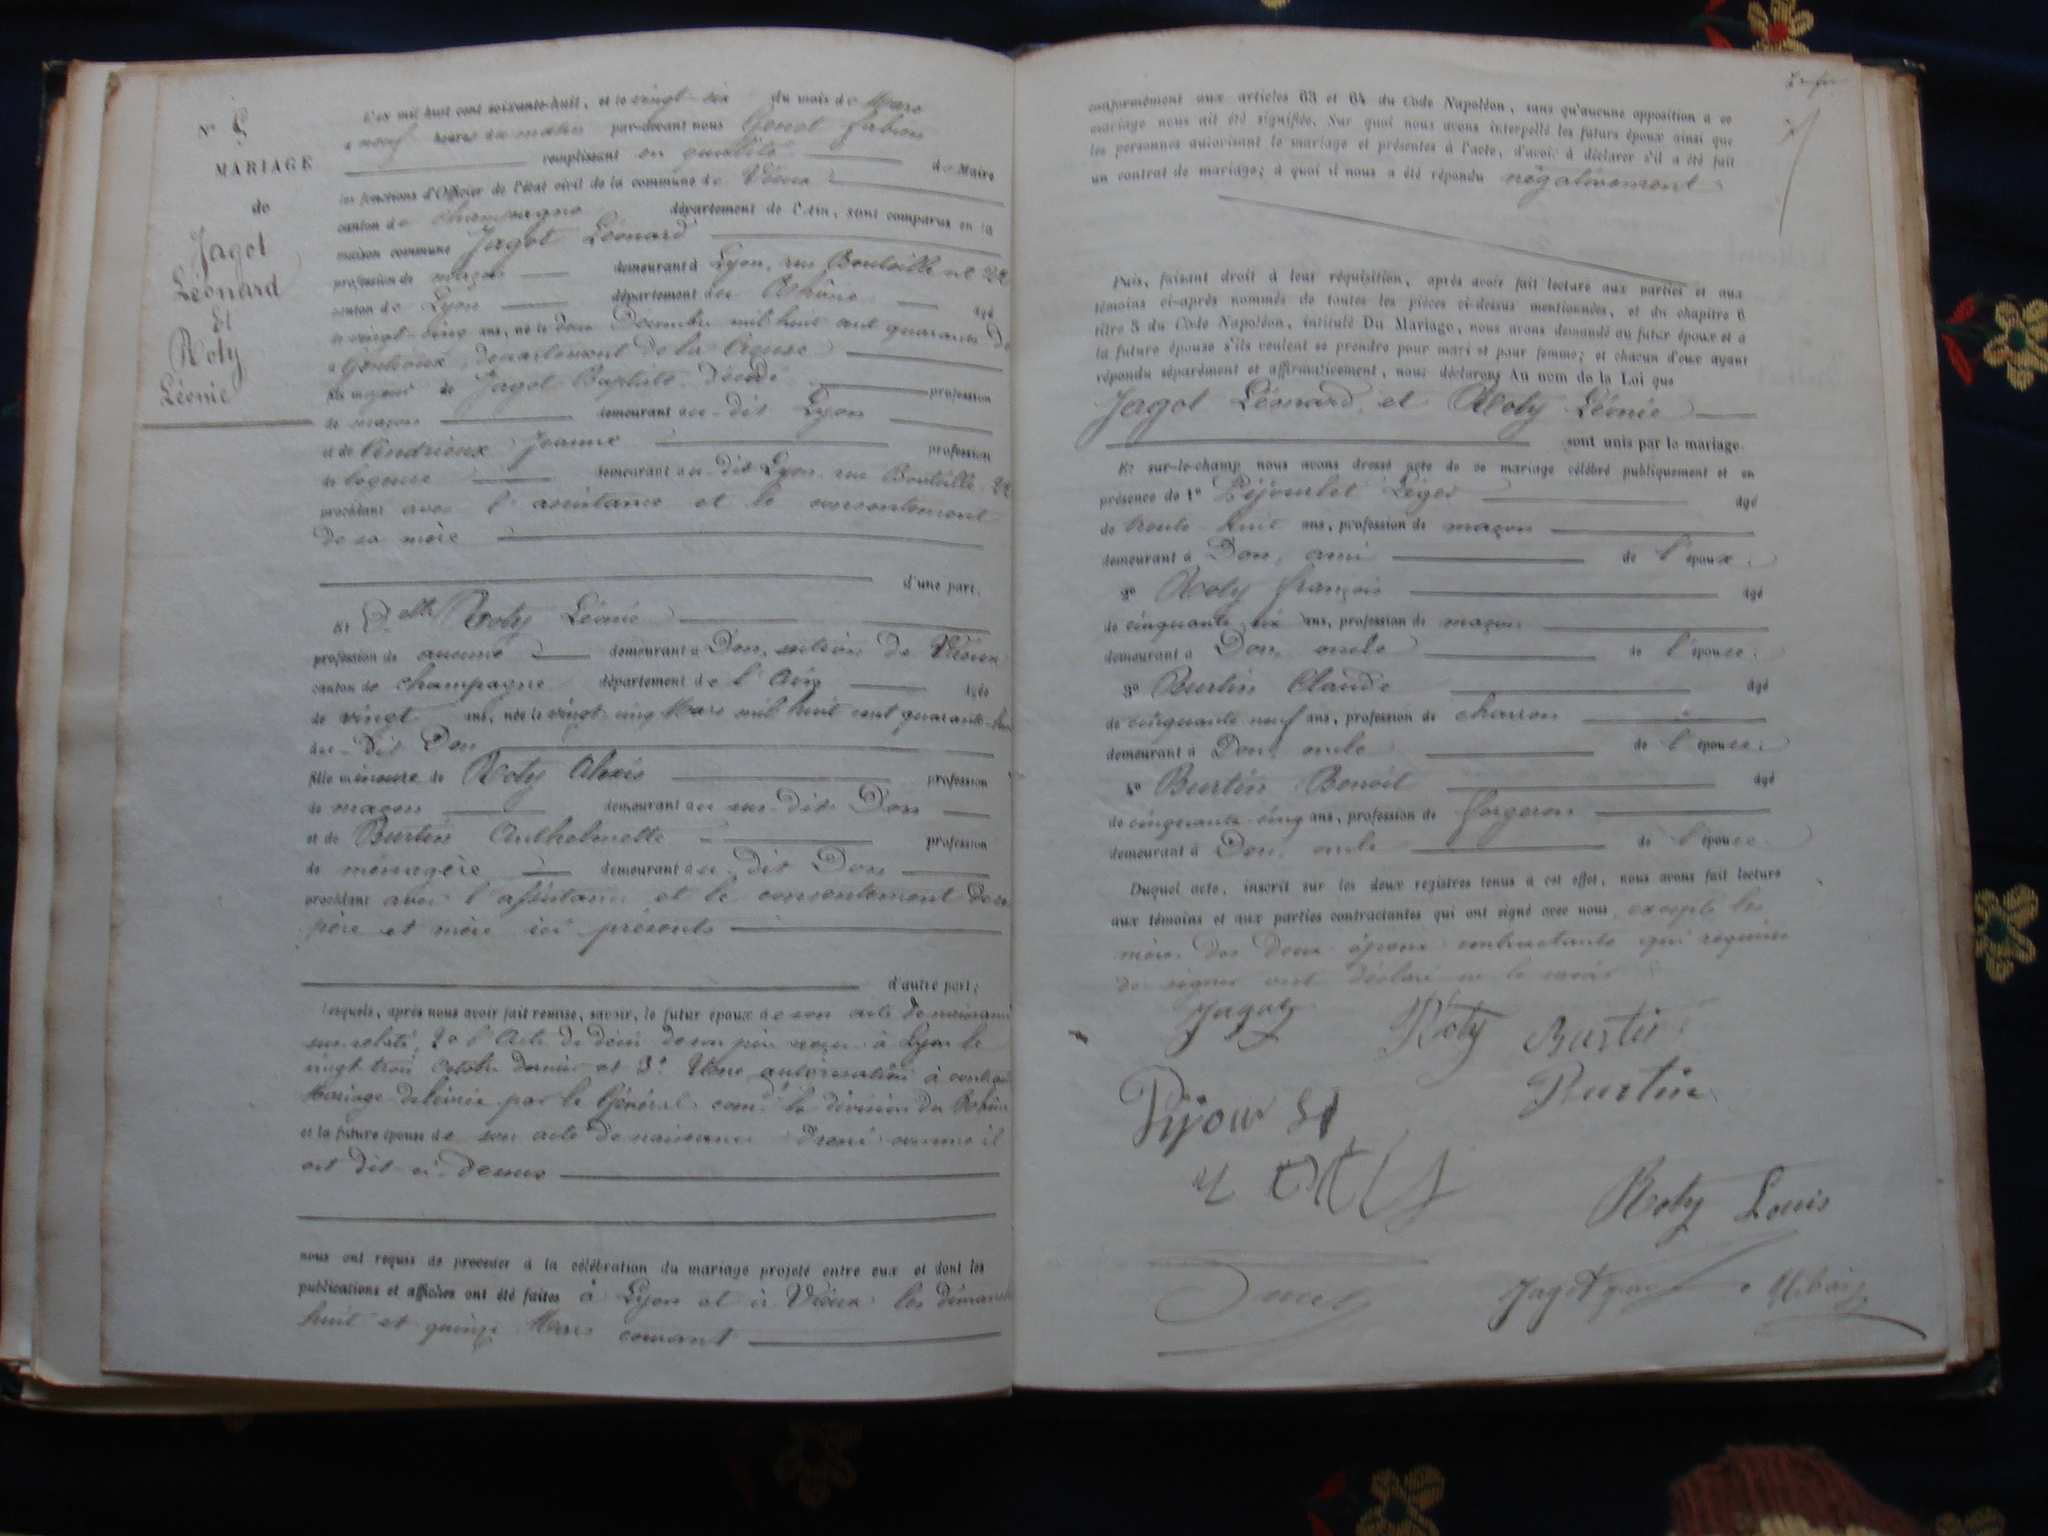 N° 5
MARIAGE
de
Jagot
Léonard
Et
Roty
Léonie
L'an mil huit cent soixante-huit, et le vingt-six du mois de Mars
à neuf heures du matin par-devant nous
remplissant en qualité de Maire
les fonctions d'Officier de l'état civil de la commune de Vieux
canton de Champagne département de l'Ain, sont comparus en la
maison commune Jagot Léonard
profession de maçon demeurant à Lyon, rue Bouteille n° 22
canton de Lyon département du Rhône âgé
de vingt-cinq ans, né le deux Décembre mil huit cent quarante de
à Gentioux, département de la Creuse
fils majeur de Jagot Baptiste décédé profession
de maçon demeurant au-dit Lyon
et de Vendrieux Jeanne profession
de logeuse demeurant au-dit Lyon, rue Bouteille 22
procédant avec l'assistance et le consentement
de sa mère
d'une part.
Et Delle Roty Léonie
profession de aucune demeurant à Don, section de Vieux
canton de Champagne département de l'Ain âgée
de vingt ans, née le vingt-cinq Mars mil huit cent quarante-huit
au-dit Don
fille mineure de Roty Alexis profession
de maçon demeurant au sus-dit Don
et de Burtin Antholmette profession
de ménagère demeurant au-dit Don
procédant avec l'assistance et le consentement de ses
père et mère ici présents
d'autre part;
Lesquels, après nous avoir fait remise, savoir, le futur époux de son acte de naissance
sus-relaté, 2° l'Acte de décès de son père reçu à Lyon le
vingt-trois Octobre dernier et 3° Une autorisation à contracter
Mariage délivrée par le Général comdt la division du Rhône
et la future épouse de son acte de naissance dressé comme il
est dit ci-dessus
nous ont requis de procéder à la célébration du mariage projeté entre eux et dont les
publications et affiches ont été faites à Lyon et à Vieux les dimanches
huit et quinze Mars courant
conformément aux articles 63 et 64 du Code Napoléon, sans qu'aucune opposition à ce
mariage nous ait été signifiée. Sur quoi nous avons interpellé les futurs époux ainsi que
les personnes autorisant le mariage et présentes à l'acte, d'avoir à déclarer s'il a été fait
un contrat de mariage; à quoi il nous a été répondu négativement
Puis, faisant droit à leur réquisition, après avoir fait lecture aux parties et aux
témoins ci-après nommés de toutes les pièces ci-dessus mentionnées, et du chapitre 6
titre 5 du Code Napoléon, intitulé Du Mariage, nous avons demandé au futur époux et à
la future épouse s'ils veulent se prendre pour mari et pour femme; et chacun d'eux ayant
répondu séparément et affirmativement, nous déclarons Au nom de la Loi que
Jagot Léonard, et Roty Léonie
sont unis par le mariage.
Et sur-le-champ nous avons dressé acte de ce mariage célébré publiquement et en
présence de 1° Péjourlet Léger âgé
de trente-huit ans, profession de maçon
demeurant à Don, ami de l'époux.
2° Roty François âgé
de cinquante six ans, profession de maçon
demeurant à Don, oncle de l'épouse.
3° Burtin Claude âgé
de cinquante neuf ans, profession de charron
demeurant à Don, oncle de l'épouse.
4° Burtin Benoit âgé
de cinquante-cinq ans, profession de forgeron
demeurant à Don, oncle de l'épouse.
Duquel acte, inscrit sur les deux registres tenus à cet effet, nous avons fait lecture
aux témoins et aux parties contractantes qui ont signé avec nous, excepté les
mères des deux époux contractants qui requises
de signer ont déclaré ne le savoir
Jagot Roty Burtin
Burtin
Roty Louis
Jagot